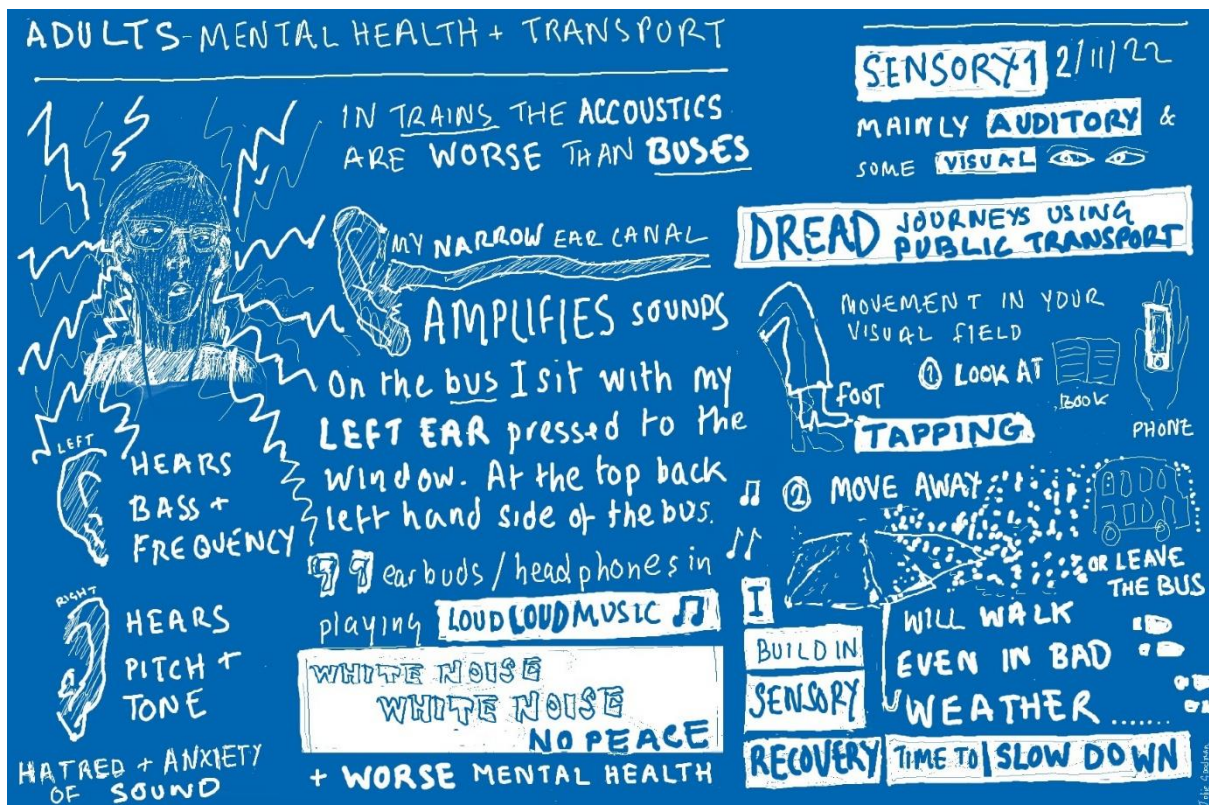 ADULTS-MENTAL HEALTH + TRANSPORT
LEFT
HEARS
BASS +
FREQUENCY
RIGHT
HEARS
PITCH +
TONE
HATRED + ANXIETY
OF SOUND
IN TRAINS THE ACCOUSTICS
ARE WORSE THAN BUSES
MY NARROW EAR CANAL
AMPLIFIES SOUNDS
On the bus I sit with my
LEFT EAR pressed to the
window. At the top back
left hand side of the bus.
earbuds/headphones in
playing LOUD LOUD MUSIC
WHITE NOISE
WHITE NOISE
NO PEACE
+ WORSE MENTAL HEALTH
SENSORY 1 2/11/22
MAINLY AUDITORY &
SOME VISUAL
DREAD JOURNEYS USING
PUBLIC TRANSPORT
MOVEMENT IN YOUR
VISUAL FIELD
① LOOK AT
BOOK
PHONE
FOOT
TAPPING
② MOVE AWAY
OR LEAVE
THE BUS
I
WILL WALK
EVEN IN BAD
WEATHER.......
BUILD IN
SENSORY
RECOVERY TIME TO SLOW DOWN
Jolie Goodman